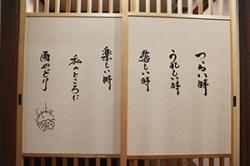 つらい時
うれしい時
悲しい時
楽しい時
私のところに
雨やどり